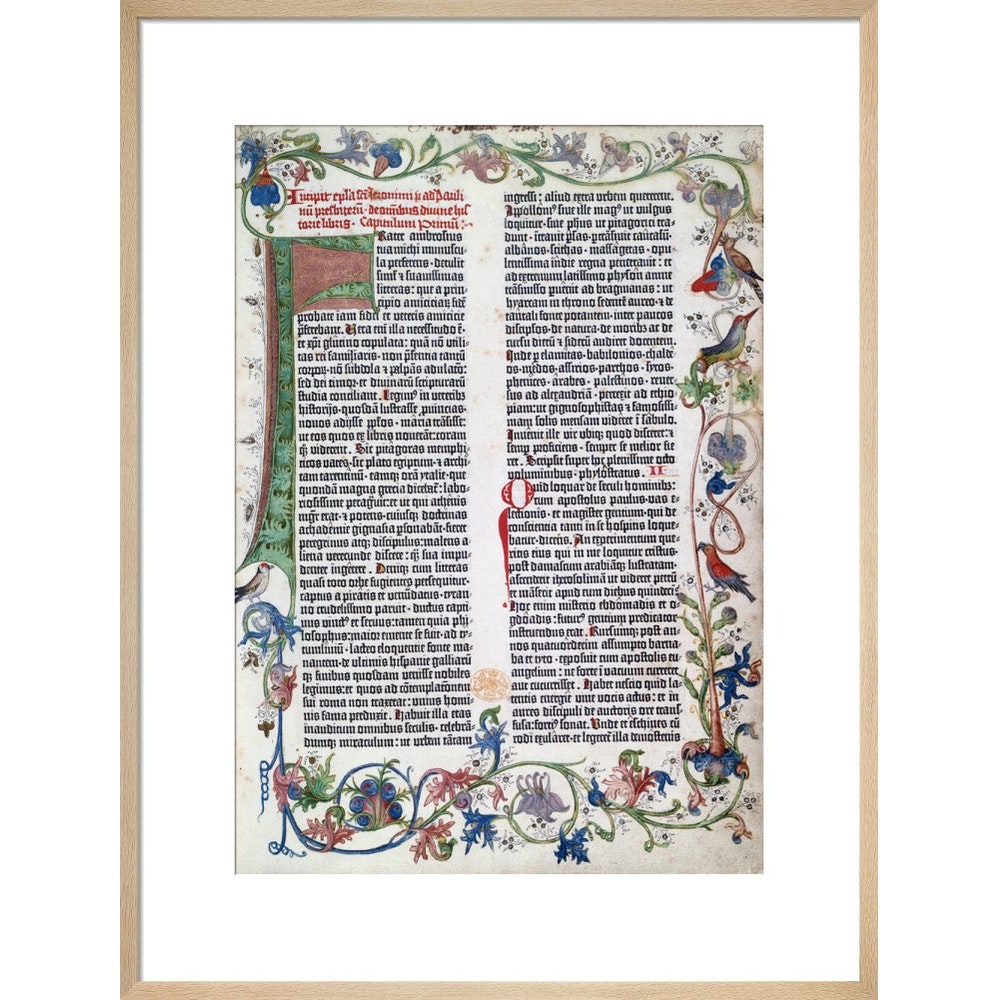 Incipit epistola sancti Iheronimi ad Pauli
num presbiterum de omnibus divine his
torie libris. Capitulum Primum.
Frater ambrosius
tua michi munuscu-
la perferens · detulit
simul et suavissimas
litteras: que a prin-
cipio amiciciarum fidem
probate iam fidei et veteris amicicie
preferebant. Vera enim illa necessitudo est
et cristi glutino copulata: quam non utili-
tas rei familiaris · non presentia tantum
corporum · non subdola et palpans adulatio:
sed dei timor · et divinarum scripturarum
studia conciliant. Legimus in veteribus
historijs · quosdam lustrasse provincias ·
novos adijsse populos · maria transisse:
ut eos quos ex libris noverant: coram
quoque viderent. Sic pitagoras memphi-
ticos vates · sic plato egiptum · et archi-
tam tarentinum · eamque oram ytalie · que
quondam magna grecia dicebatur: labo-
riosissime peragravit: et ut qui athenis
magister erat · et potens · cuiusque doctrinas
achademie gignasia personabant · fieret
peregrinus atque discipulus: malens a-
liena verecunde discere: quam sua impu-
denter ingerere. Denique cum litteras
quasi toto orbe fugientes persequitur ·
captus a piratis et venundatus · tyran-
no crudelissimo paruit · ductus capti-
vus vinctus et servus: tamen quia phi-
losophus: maior emente se fuit · ad ty-
tumlivium · lacteo eloquentie fonte ma-
nantem · de ultimis hispanie galliarum
que finibus quosdam venisse nobiles
legimus: et quos ad contemplationem
sui roma non traxerat: unius homi-
nis fama perduxit. Habuit illa etas
inauditum omnibus seculis · celebran-
dumque miraculum: ut urbem tantam
ingressi: aliud extra urbem quererent.
Appollonius sive ille magus ut vulgus
loquitur · sive philosophus ut pitagorici tra-
dunt · intravit persas · pertransivit caucasum ·
albanos · scithas · massagetas · opu-
lentissima indie regna penetravit: et
ad extremum latissimo physon amne
transmisso pervenit ad bragmanas: ut
hyarcam in throno sedentem aureo · et de
tantali fonte potantem · inter paucos
discipulos · de natura · de moribus ac de
cursu dierum et siderum audiret docentem.
Inde per elamitas · babilonios · chalde-
os · medos · assirios · parthos · syros ·
phenices · arabes · palestinos · rever-
sus ad alexandriam · perrexit ad ethio-
piam: ut gignosophistas et famosissi-
mam solis mensam videret in sabulo.
Invenit ille vir ubique quod disceret: et
semper proficiens · semper se melior fie-
ret. Scripsit super hoc plenissime octo
voluminibus · phylostratus. II
Quid loquar de seculi hominibus:
cum apostolus paulus · vas e-
lectionis · et magister gentium · qui de
conscientia tanti in se hospitis loque-
batur · dicens. An experimentum que-
ritis eius qui in me loquitur cristus ·
post damascum arabiamque lustratam ·
ascenderit iherosolimam ut videret petrum
et manserit apud eum diebus quindecim.
Hoc enim misterio ebdomadis et o-
gdoadis: futurus gentium predicator
instruendus erat. Rursumque post an-
nos quatuordecim assumpto barna-
ba et tyto · exposuit cum apostolis e-
vangelium: ne forte in vacuum curreret
aut cucurrisset. Habet nescio quid la-
tentis energie vive vocis actus: et in
aures discipuli de auctoris ore trans-
fusa: fortius sonat. Unde et eschines cum
rodi exularet · et legeretur illa demostenis